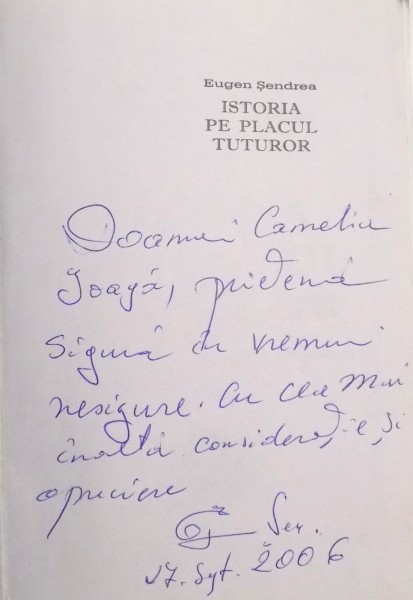 Eugen Șendrea
ISTORIA
PE PLACUL
TUTUROR
Doamnei Camelia
Joagă, prietenă
sigură în vremuri
nesigure. Cu cea mai
înaltă considerați-e, și
apreciere
17. Spt. 2006